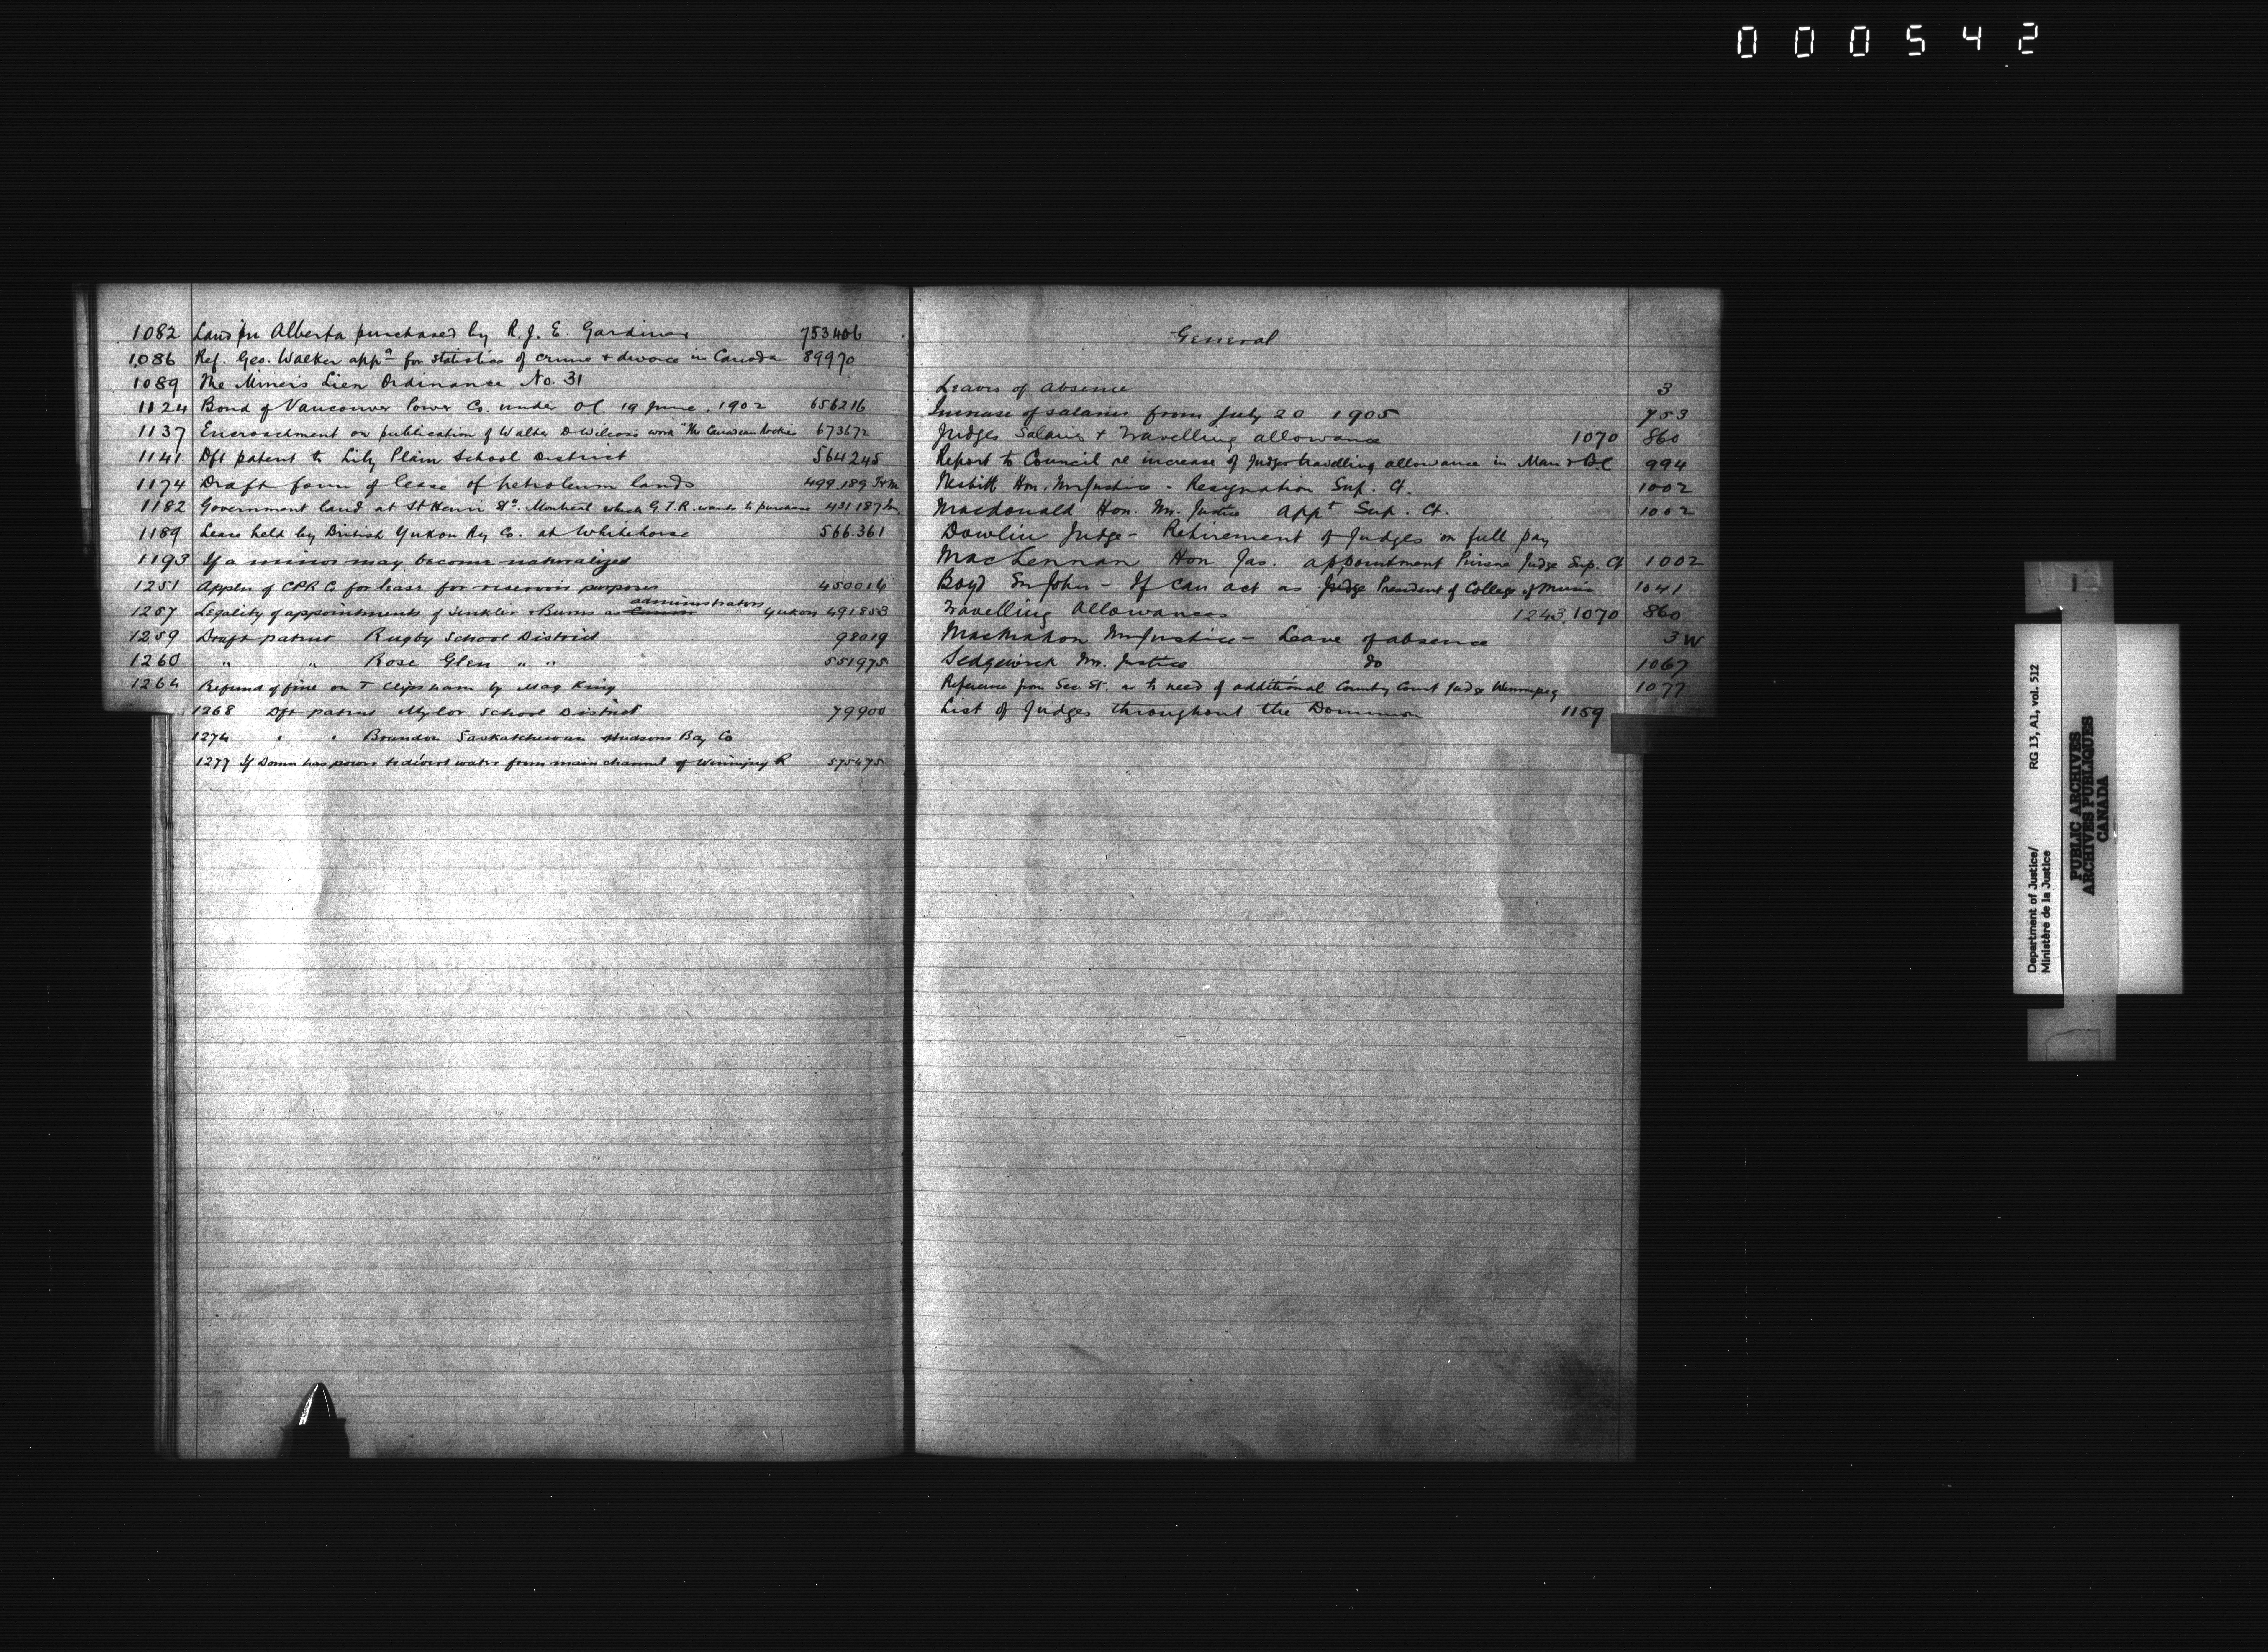 000542
1082 Land in Alberta purchased by R. J. E. Gardiner 753406
1086 Ref. Geo. Walker appn for statistics of crime + divorce in Canada 89970
1089 The Miners Lien Ordinance No. 31
1124 Bond of Vancouver Power Co. under OC. 19 June, 1902 656216
1137 Encroachment on publication of Walter D Wilcox's work "The Canadian Rockies 673672
1141 Dft patent to Lily Plain School District 564245
1174 Draft form of lease of petroleum lands 499.189
1182 Government land at St Henri St. Montreal which G.T.R. wants to purchase 431187
1189 Lease held by British Yukon Ry Co. at Whitehorse 566.361
1193 If a minor may become naturalized
1251 Appln of CPR Co for lease for reservoir purposes 450016
1257 Legality of appointments of Senkler + Burns as administrators Yukon 491853
1259 Draft patent Rugby School District 98019
1260 " " Rose Glen " " 551975
1264 Refund of fine on T Clipsham by Mag King
1268 Dft patent Mylor School District 79900
1274 " " Brandon Saskatchewan Hudsons Bay Co
1277 If Domn has power to divert water from main channel of Winnipeg R 575475
General
Leaves of absence 3
Increase of salaries from July 20 1905 753
Judges Salaries + Travelling allowance 1070 860
Report to Council re increase of Judges travelling allowance in Man + BC 994
Nesbitt Hon. Mr Justice - Resignation Sup. Ct. 1002
Macdonald Hon. Mr. Justice appt Sup. Ct. 1002
Dowlin Judge - Retirement of Judges on full pay
MacLennan Hon Jas. appointment Puisne Judge Sup. Ct 1002
Boyd Sir John - If can act as Judge President of College of Music 1041
Travelling Allowances 1243, 1070 860
MacMahon Mr Justice - Leave of absence 3 W
Sedgewick Mr. Justice do 1067
Reference from Sec St. as to need of additional County Court Judge Winnipeg 1077
List of Judges throughout the Dominion 1159
Department of Justice/ RG 13, A1, vol. 512
Ministère de la Justice
PUBLIC ARCHIVES
ARCHIVES PUBLIQUES
CANADA